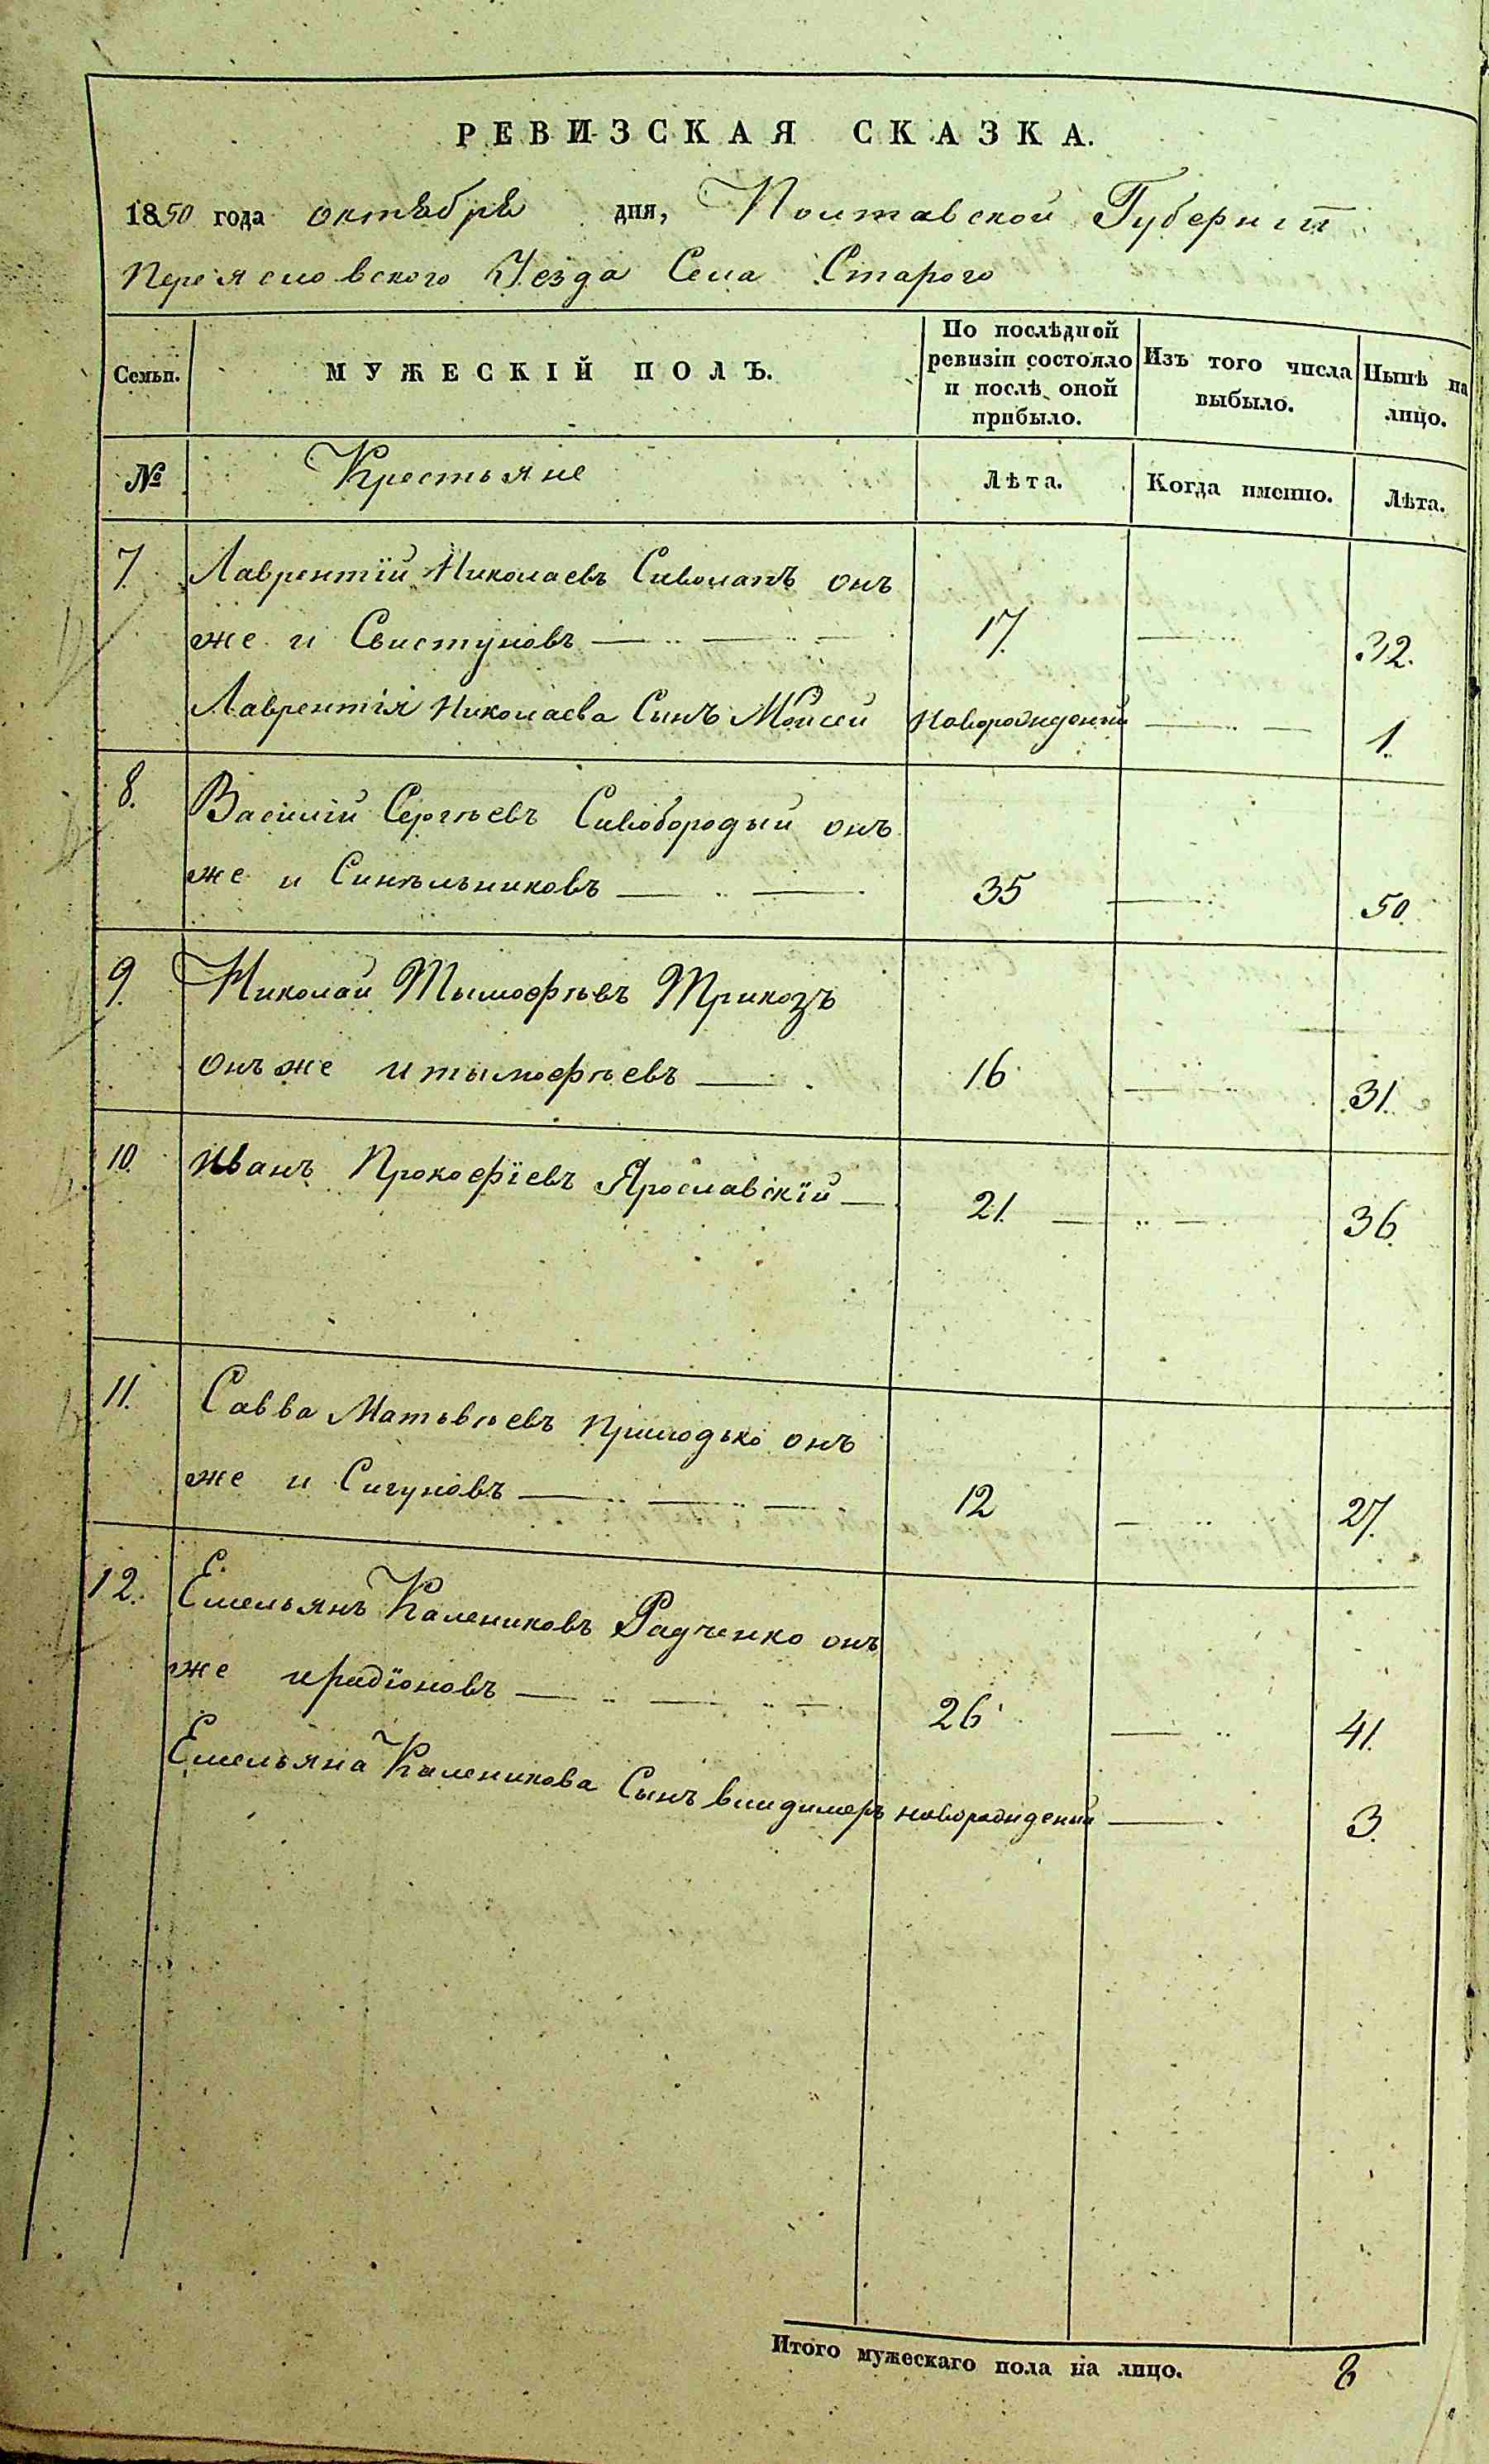 РЕВИЗСКАЯ СКАЗКА.
1850 года октября дня, Полтавской Губерніи
Переясловского Уезда Села Старого
Семьи. МУЖЕСКІЙ ПОЛЪ. По послѣдной ревизіи состояло и послѣ оной прибыло. Изъ того числа выбыло. Нынѣ на лицо.
№ Крестьяне Лѣта. Когда именно. Лѣта.
7. Лаврентій Николаевъ Сиволапъ онъ
же и Свистуновъ 17. 32.
Лаврентія Николаева Сынъ Моисей новорожденый 1.
8. Василій Сергѣевъ Сивобородый онъ
же и Синѣльниковъ 35 50.
9. Николай Тымофѣевъ Трикозъ
онъ же и тымофѣевъ 16 31.
10. Иванъ Прокофіевъ Ярославскій 21. 36.
11. Савва Матвѣевъ Приходько онъ
же и Сигуновъ 12 27.
12. Емельянъ Калениковъ Радченко онъ
же и радіоновъ 26 41.
Емельяна Каленикова Сынъ владимеръ новорожденый 3.
Итого мужескаго пола на лицо. 8